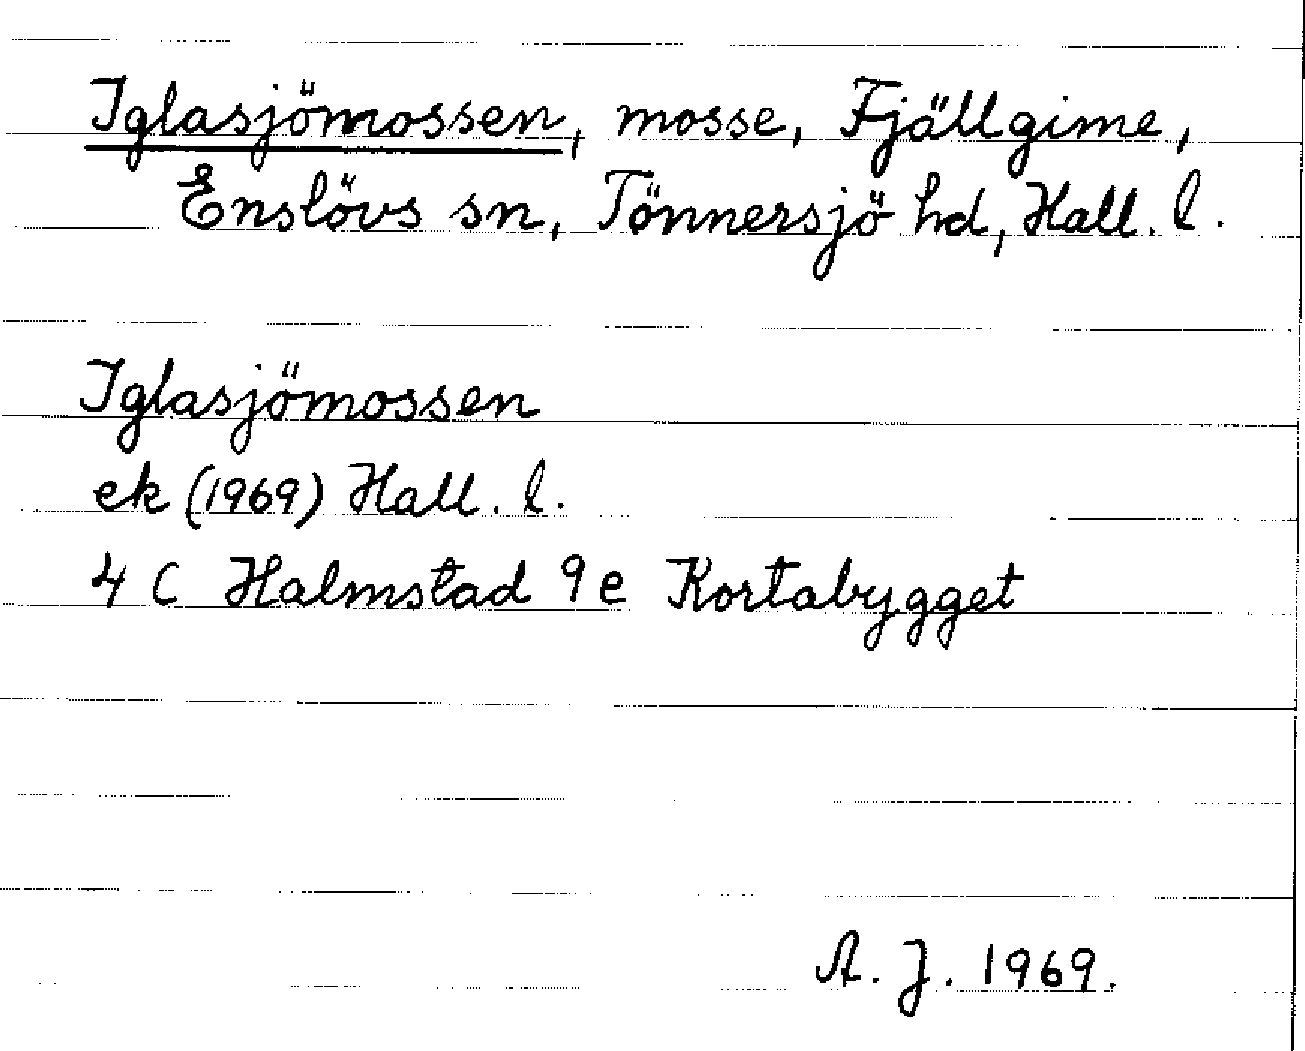 Iglasjömossen, mosse, Fjällgime,
Enslövs sn, Tönnersjö hd, Hall. l.
Iglasjömossen
ek (1969) Hall. l.
4 C Halmstad 9 e Kortabygget
A. J. 1969.